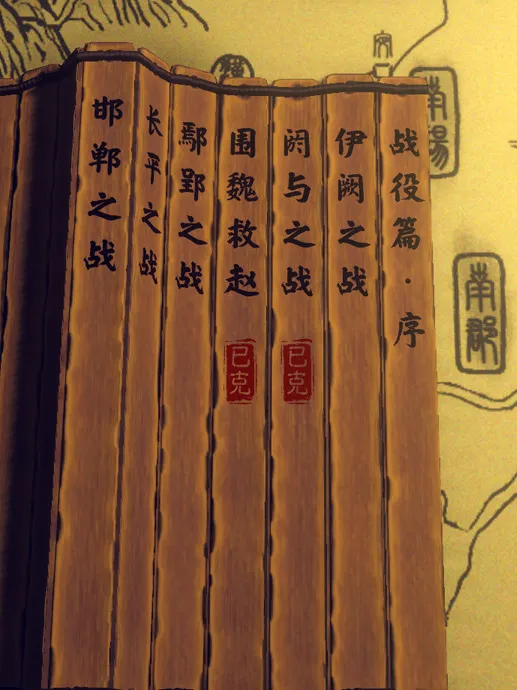 战役篇·序
伊阙之战
阏与之战
已克
围魏救赵
已克
鄢郢之战
长平之战
邯郸之战
南陽
南郡